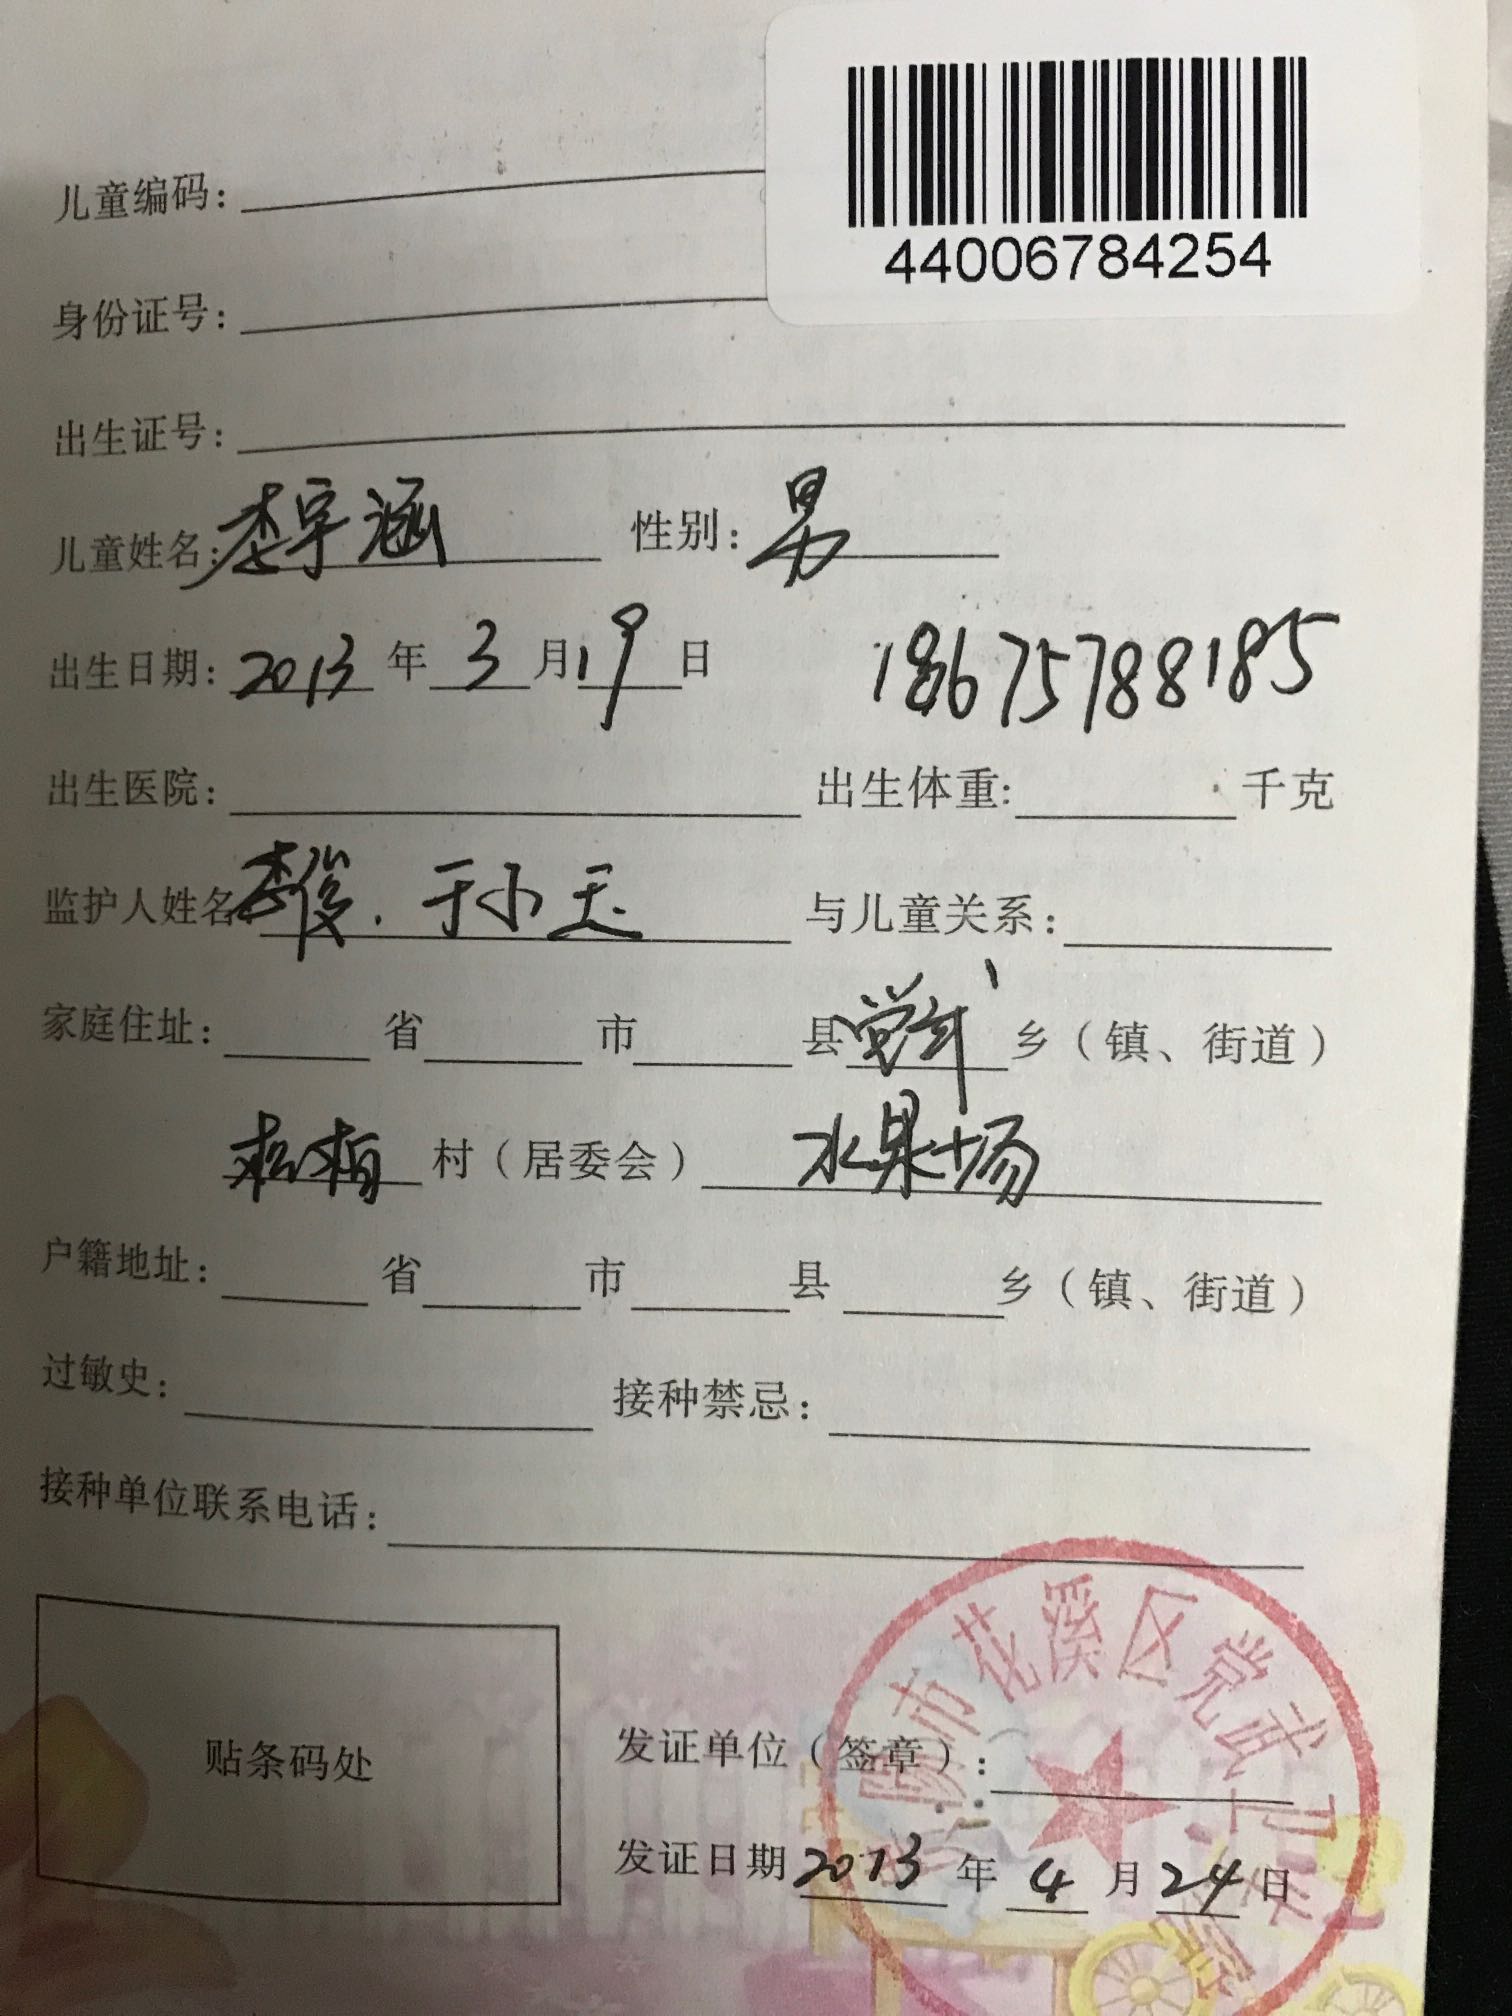 44006784254
儿童编码：
身份证号：
出生证号：
儿童姓名：李宇涵 性别：男
出生日期：2013年3月19日 18675788185
出生医院： 出生体重： 千克
监护人姓名 李俊．于小玉 与儿童关系：
家庭住址： 省 市 县 党武 乡（镇、街道）
松柏 村（居委会） 水果场
户籍地址： 省 市 县 乡（镇、街道）
过敏史： 接种禁忌：
接种单位联系电话：
贵阳市花溪区党武卫生院
贴条码处
发证单位（签章）：
发证日期 2013年4月24日